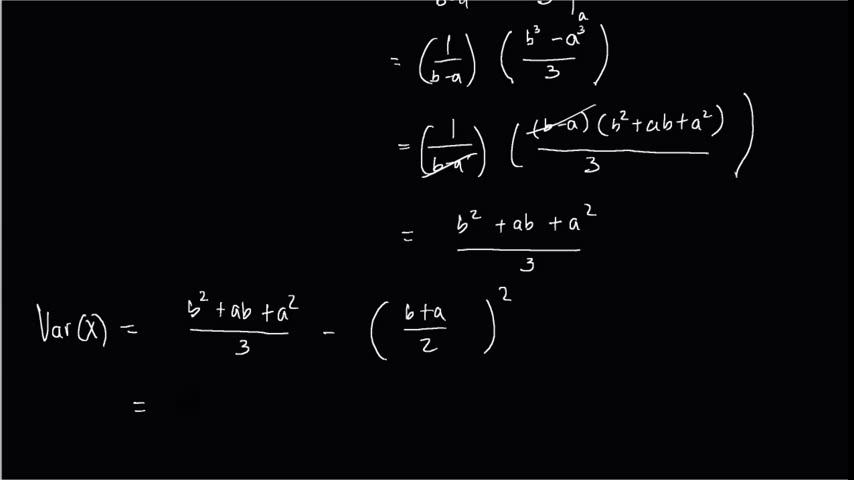 = (1/(b-a)) ((b³ - a³)/3)
= (1/(b-a)) ((b-a)(b² + ab + a²)/3)
= (b² + ab + a²)/3
Var(X) = (b² + ab + a²)/3 - ((b+a)/2)²
=